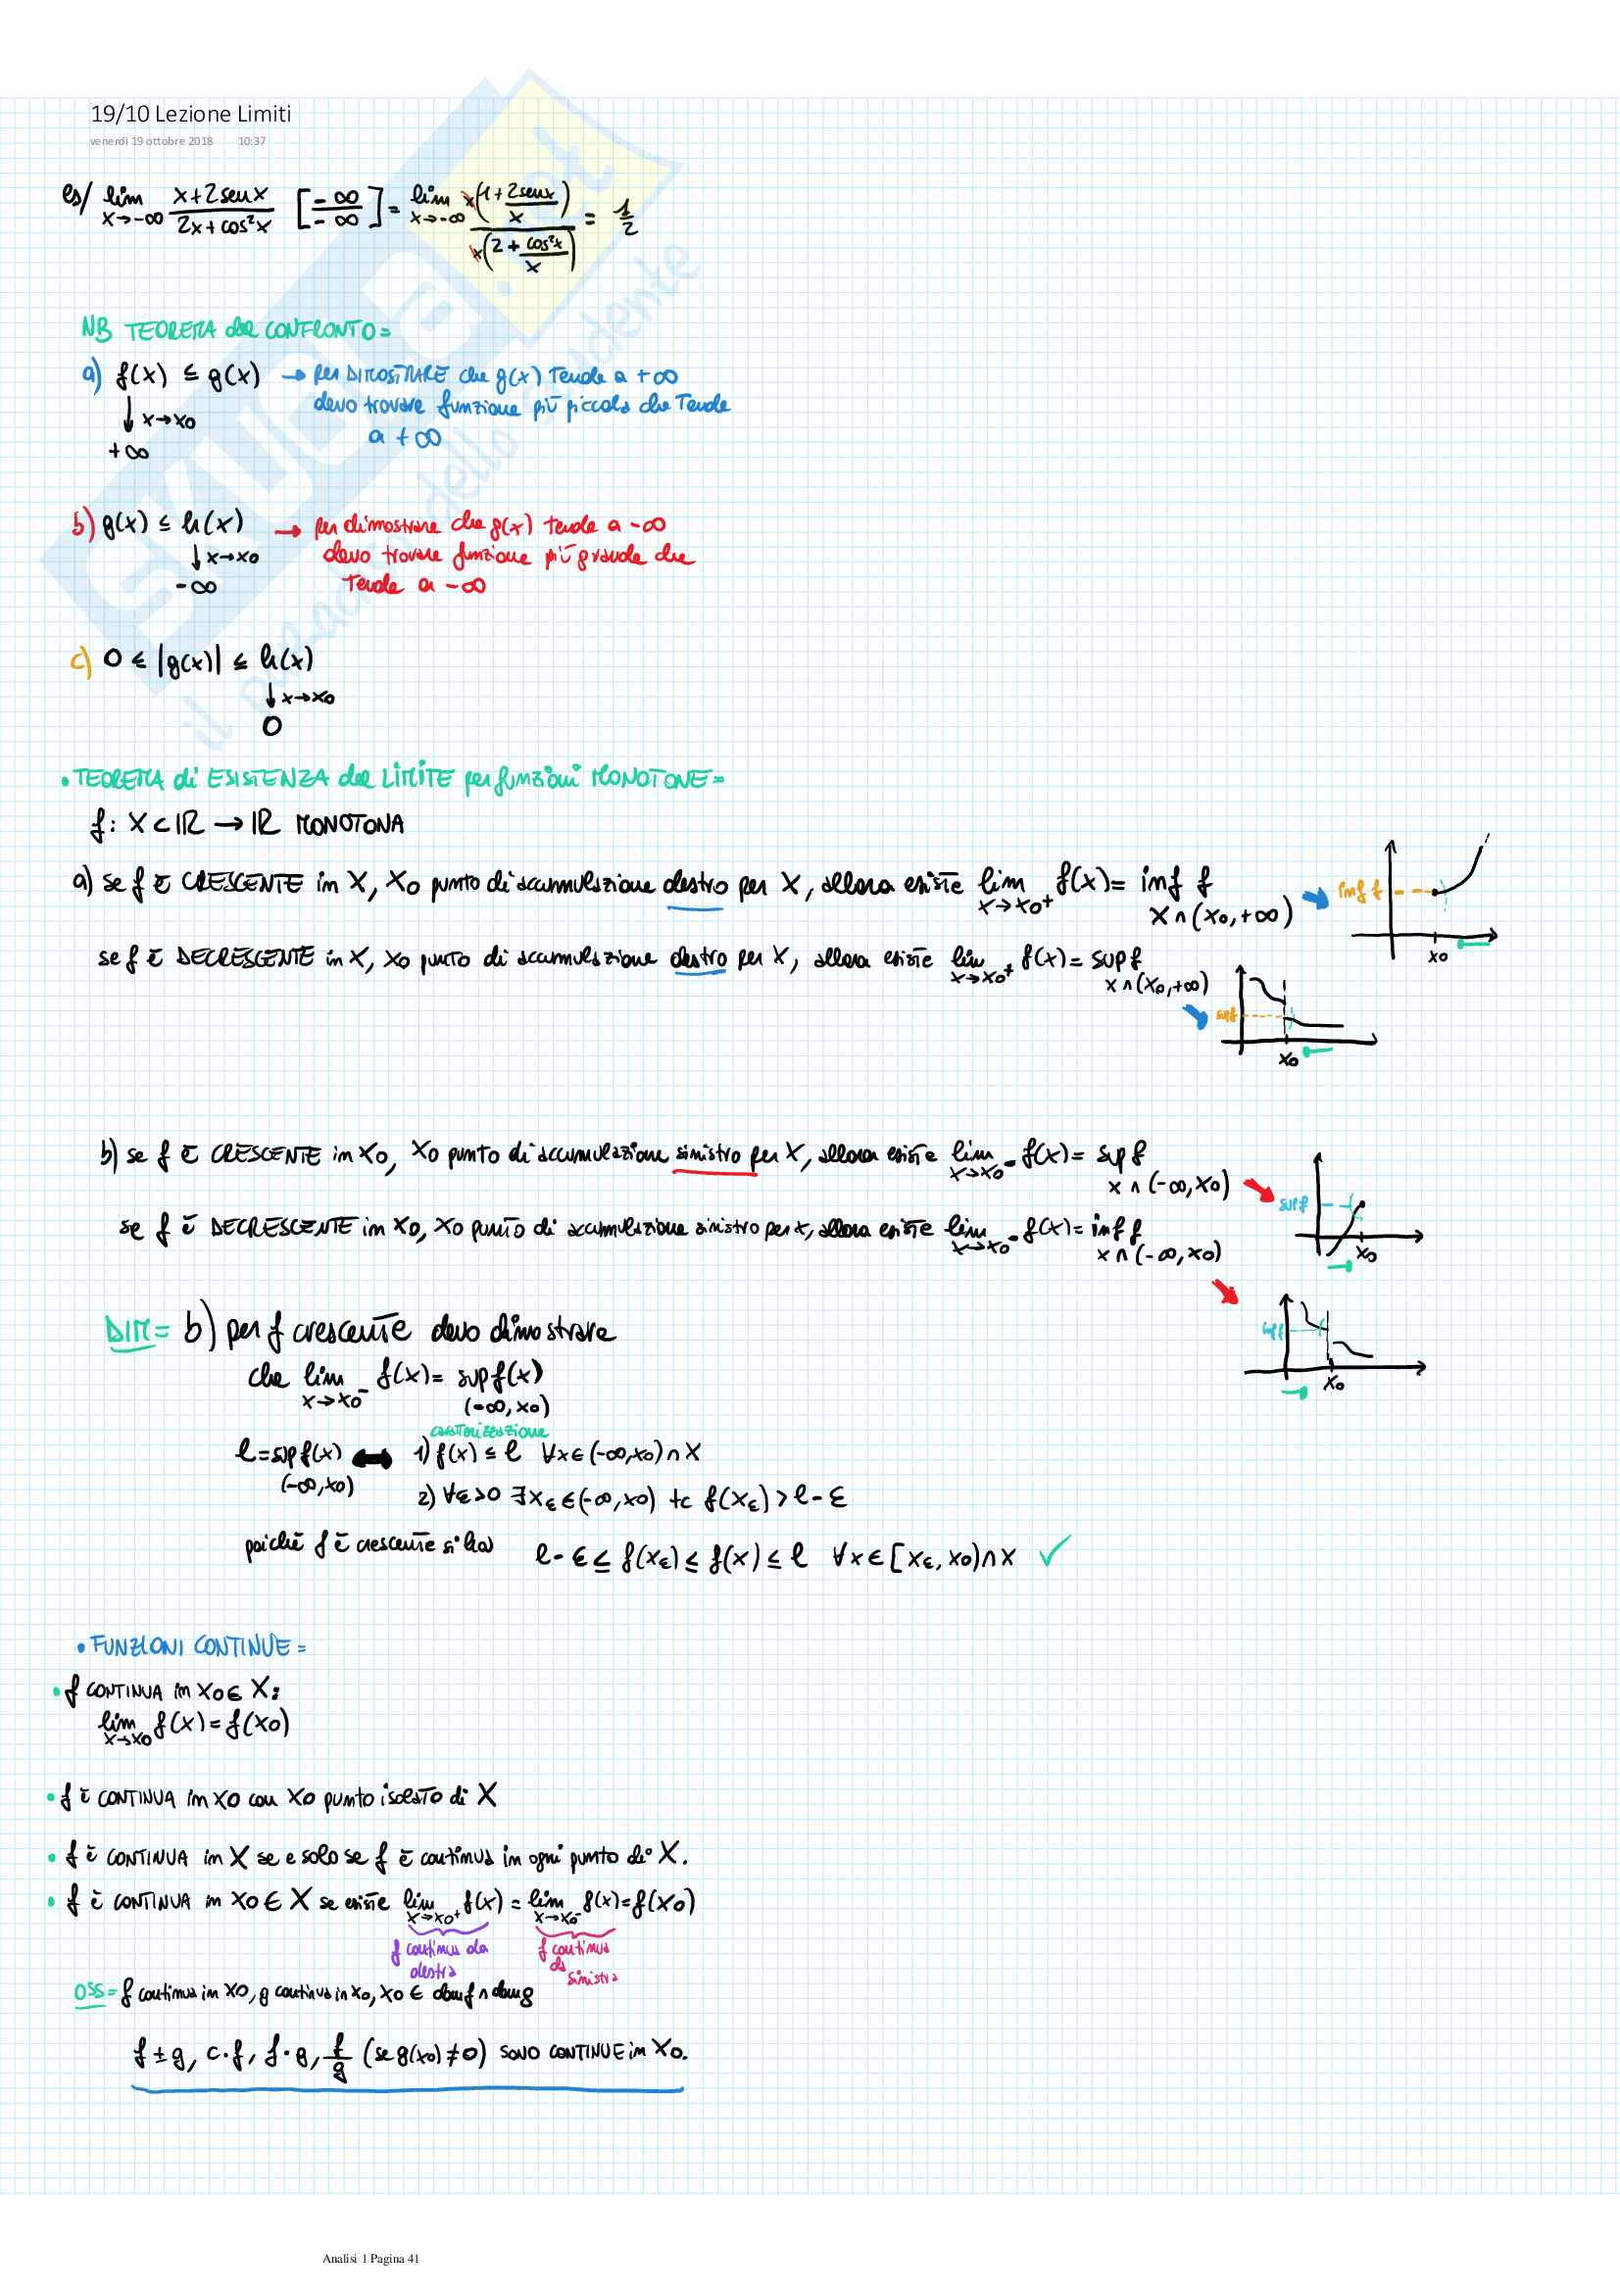 19/10 Lezione Limiti
venerdì 19 ottobre 2018 10:37
es/ lim x→-∞ (x+2senx)/(2x+cos²x) [-∞/-∞] = lim x→-∞ x(1+2senx/x)/x(2+cos²x/x) = 1/2
NB TEOREMA del CONFRONTO=
a) f(x) ≤ g(x) → per DIMOSTRARE che g(x) Tende a +∞
↓ x→x0 devo trovare funzione più piccola che Tende
+∞ a +∞
b) g(x) ≤ h(x) → per dimostrare che g(x) tende a -∞
↓ x→x0 devo trovare funzione più grande che
-∞ Tende a -∞
c) 0 ≤ |g(x)| ≤ h(x)
↓ x→x0
0
• TEOREMA di ESISTENZA del LIMITE per funzioni MONOTONE=
f: X⊂ℝ → ℝ MONOTONA
a) se f è CRESCENTE in X, X0 punto di accumulazione destro per X, allora esiste lim x→x0+ f(x) = inf f
X∩(x0,+∞)
inf f
x0
se f è DECRESCENTE in X, X0 punto di accumulazione destro per X, allora esiste lim x→x0+ f(x) = sup f
X∩(x0,+∞)
sup f
x0
b) se f è CRESCENTE in X0, X0 punto di accumulazione sinistro per X, allora esiste lim x→x0- f(x) = sup f
X∩(-∞,x0)
sup f
x0
se f è DECRESCENTE in X0, X0 punto di accumulazione sinistro per x, allora esiste lim x→x0- f(x) = inf f
X∩(-∞,x0)
x0
DIM= b) per f crescente devo dimostrare
che lim x→x0- f(x) = sup f(x)
(-∞,x0)
caratterizzazione
l=sup f(x) ⟺ 1) f(x) ≤ l ∀x∈(-∞,x0)∩X
(-∞,x0)
2) ∀ε>0 ∃xε∈(-∞,x0) tc f(xε)>l-ε
poiché f è crescente si ha l-ε ≤ f(xε) ≤ f(x) ≤ l ∀x∈[xε,x0)∩X ✓
• FUNZIONI CONTINUE=
• f CONTINUA in X0∈X:
lim x→x0 f(x) = f(x0)
• f è CONTINUA in X0 con X0 punto isolato di X
• f è CONTINUA in X se e solo se f è continua in ogni punto di X.
• f è CONTINUA in X0∈X se esiste lim x→x0+ f(x) = lim x→x0- f(x) = f(x0)
f continua da f continua
destra da sinistra
OSS= f continua in X0, g continua in x0, x0 ∈ domf∩domg
f±g, c·f, f·g, f/g (se g(x0)≠0) SONO CONTINUE in X0.
Analisi 1 Pagina 41